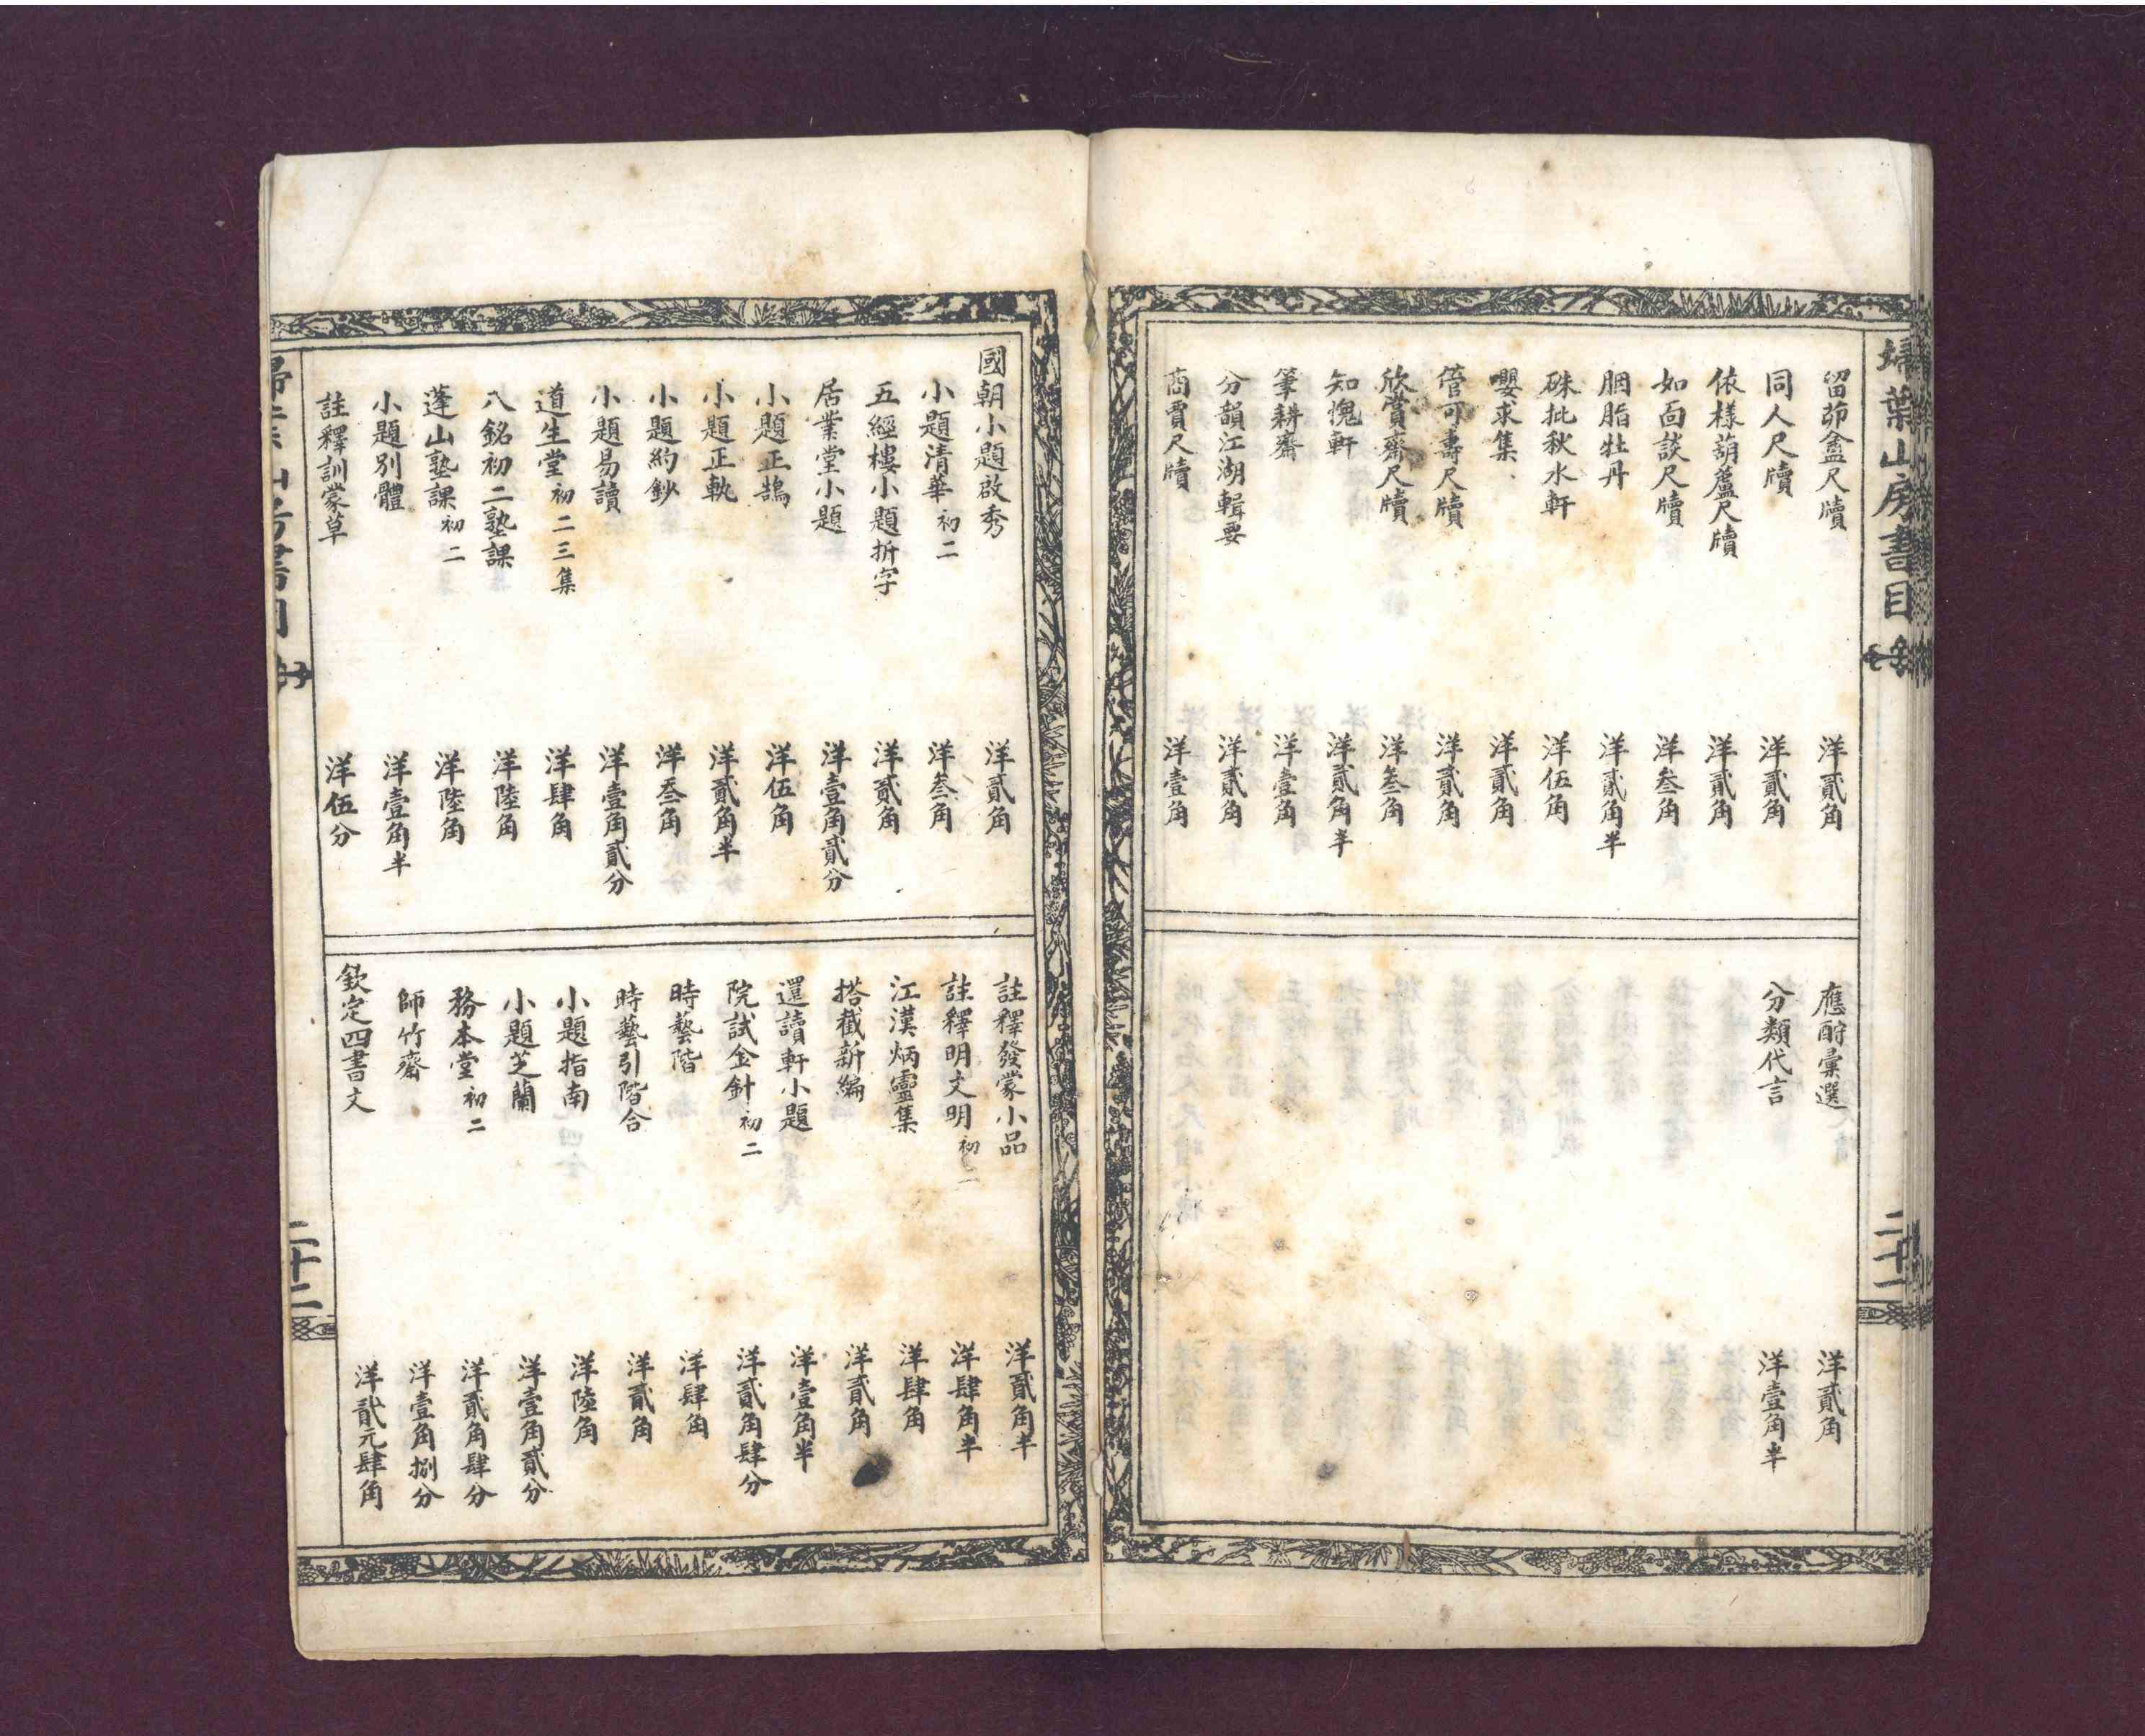 掃葉山房書目
二十一
留茆盦尺牘 洋貳角
同人尺牘 洋貳角
依樣葫蘆尺牘 洋貳角
如面談尺牘 洋叁角
胭脂牡丹 洋貳角半
硃批秋水軒 洋伍角
嚶求集 洋貳角
管可壽尺牘 洋貳角
欣賞齋尺牘 洋叁角
知愧軒 洋貳角半
筆耕齋 洋壹角
分韻江湖輯要 洋貳角
商賈尺牘 洋壹角
應酧彙選 洋貳角
分類代言 洋壹角半
國朝小題啟秀 洋貳角
小題清華初二 洋叁角
五經樓小題拆字 洋貳角
居業堂小題 洋壹角貳分
小題正鵠 洋伍角
小題正軌 洋貳角半
小題約鈔 洋叁角
小題易讀 洋壹角貳分
道生堂初二三集 洋肆角
八銘初二塾課 洋陸角
蓬山塾課初二 洋陸角
小題別體 洋壹角半
註釋訓蒙草 洋伍分
註釋發蒙小品 洋貳角半
註釋明文明初二 洋肆角半
江漢炳靈集 洋肆角
搭截新編 洋貳角
還讀軒小題 洋壹角半
院試金針初二 洋貳角肆分
時藝階 洋肆角
時藝引階合 洋貳角
小題指南 洋陸角
小題芝蘭 洋壹角貳分
務本堂初二 洋貳角肆分
師竹齋 洋壹角捌分
欽定四書文 洋貳元肆角
二十二